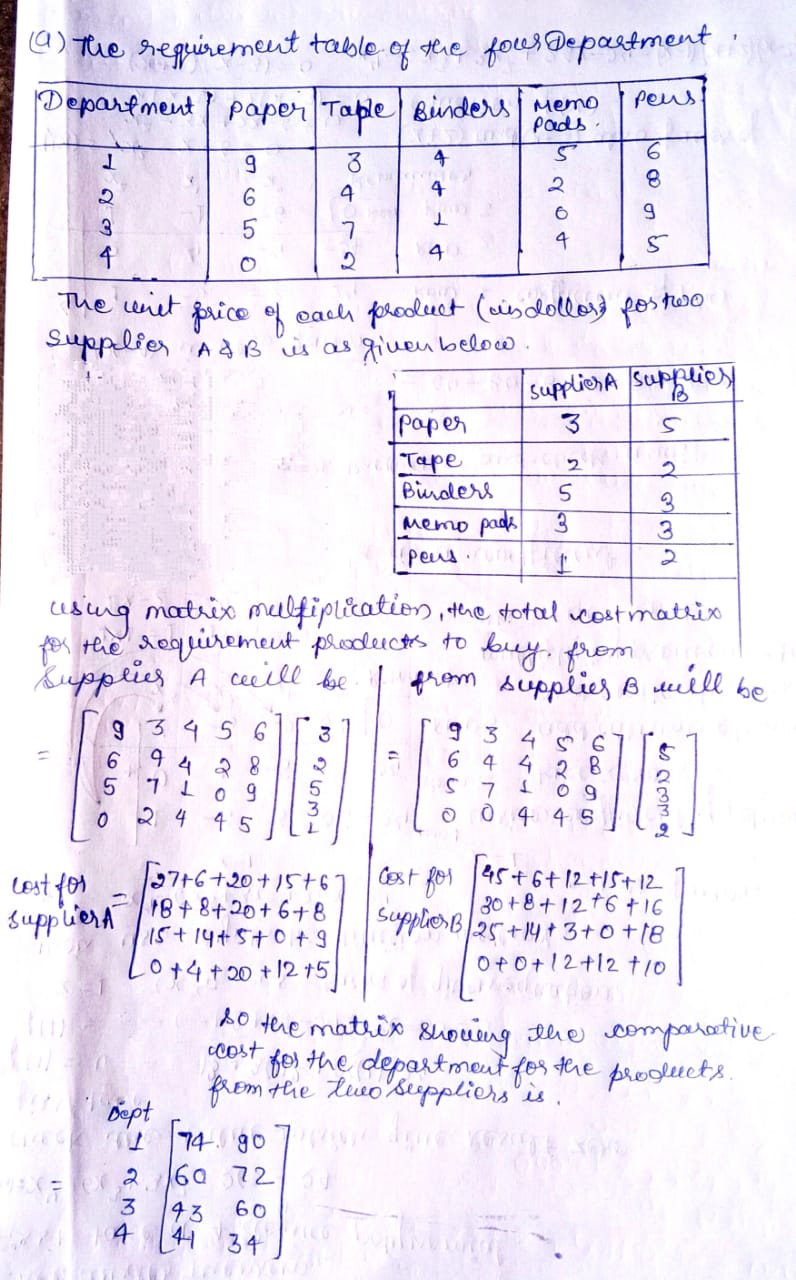 (a) The requirement table of the four Department.
Department Paper Tape Binders Memo Pads. Pens
1 9 3 4 5 6
2 6 4 4 2 8
3 5 7 1 0 9
4 0 2 4 4 5
The unit price of each product (in dollors) for two
supplier A & B is as given below.
Supplier A Supplier B
Paper 3 5
Tape 2 2
Binders 5 3
Memo pads 3 3
Pens. 1 2
using matrix multiplication, the total cost matrix
for the requirement products to buy. from
Supplier A will be
from supplier B will be
= [9 3 4 5 6] [3]
[6 4 4 2 8] [2]
[5 7 1 0 9] [5]
[0 2 4 4 5] [3]
[1]
= [9 3 4 5 6] [5]
[6 4 4 2 8] [2]
[5 7 1 0 9] [3]
[0 0 4 4 5] [3]
[2]
Cost for
Supplier A
= [27+6+20+15+6]
[18+8+20+6+8]
[15+14+5+0+9]
[0+4+20+12+5]
Cost for
Supplier B
[45+6+12+15+12]
[30+8+12+6+16]
[25+14+3+0+18]
[0+0+12+12+10]
So the matrix showing the comparative
cost for the department for the products.
from the two suppliers is.
Dept
1 [74 90]
= 2 [60 72]
3 [43 60]
4 [41 34]